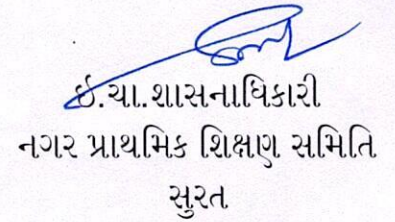 ઇ.ચા.શાસનાધિકારી
નગર પ્રાથમિક શિક્ષણ સમિતિ
સુરત